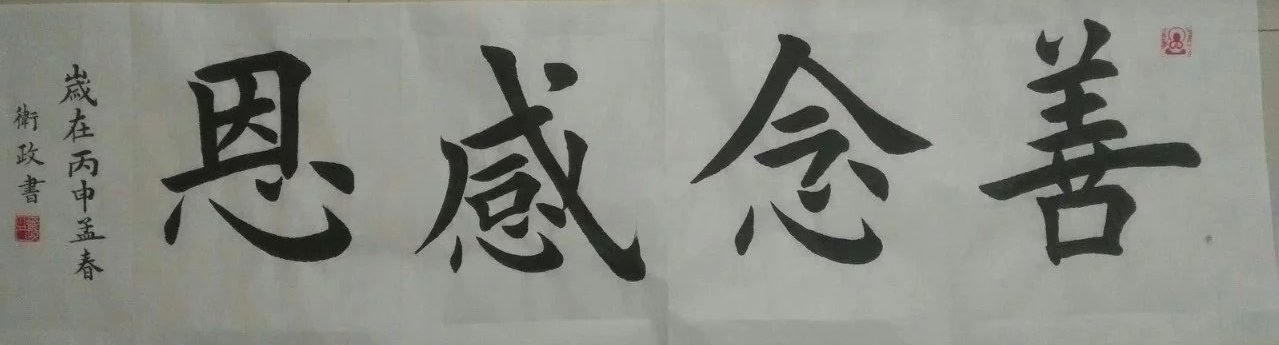 善念感恩
歲在丙申孟春
衛政書